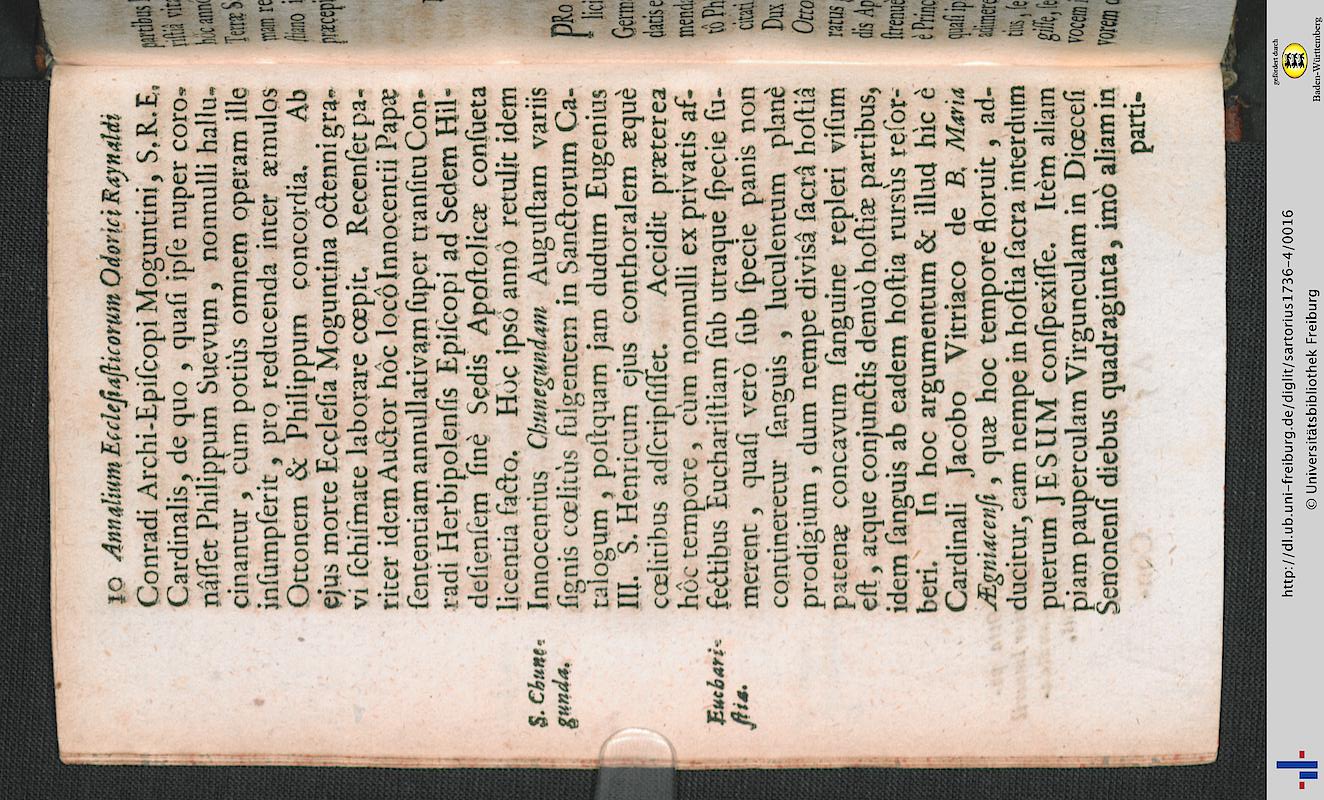 10 Annalium Ecclesiasticorum Odorici Raynaldi
Conradi Archi-Episcopi Moguntini, S. R. E.
Cardinalis, de quo, quasi ipse nuper coro-
nâsset Philippum Suevum, nonnulli hallu-
cinantur, cùm potiùs omnem operam ille
insumpserit, pro reducenda inter æmulos
Ottonem & Philippum concordia. Ab
ejus morte Ecclesia Moguntina octenni gra-
vi schismate laborare cœpit. Recenset pa-
riter idem Auctor hôc locô Innocentii Papæ
sententiam annullativam super transitu Con-
radi Herbipolensis Episcopi ad Sedem Hil-
desiensem sinè Sedis Apostolicæ consueta
licentia facto. Hoc ipsô annô retulit idem
Innocentius Chunegundam Augustam variis
signis cœlitùs fulgentem in Sanctorum Ca-
talogum, postquam jam dudum Eugenius
III. S. Henricum ejus conthoralem æquè
cœlitibus adscripsisset. Accidit præterea
hôc tempore, cùm nonnulli ex privatis af-
fectibus Eucharistiam sub utraque specie su-
merent, quasi verò sub specie panis non
contineretur sanguis, luculentum planè
prodigium, dum nempe divisâ sacrâ hostiâ
patenæ concavum sanguine repleri visum
est, atque conjunctis denuò hostiæ partibus,
idem sanguis ab eadem hostia rursùs resor-
beri. In hoc argumentum & illud hìc è
Cardinali Jacobo Vitriaco de B. Maria
Ægniacensi, quæ hoc tempore floruit, ad-
ducitur, eam nempe in hostia sacra interdum
puerum JESUM conspexisse. Itèm aliam
piam pauperculam Virgunculam in Diœcesi
Senonensi diebus quadraginta, imò aliam in
parti-
S. Chune-
gunda.
Euchari-
stia.
gefördert durch
Baden-Württemberg
http://dl.ub.uni-freiburg.de/diglit/sartorius1736-4/0016
© Universitätsbibliothek Freiburg